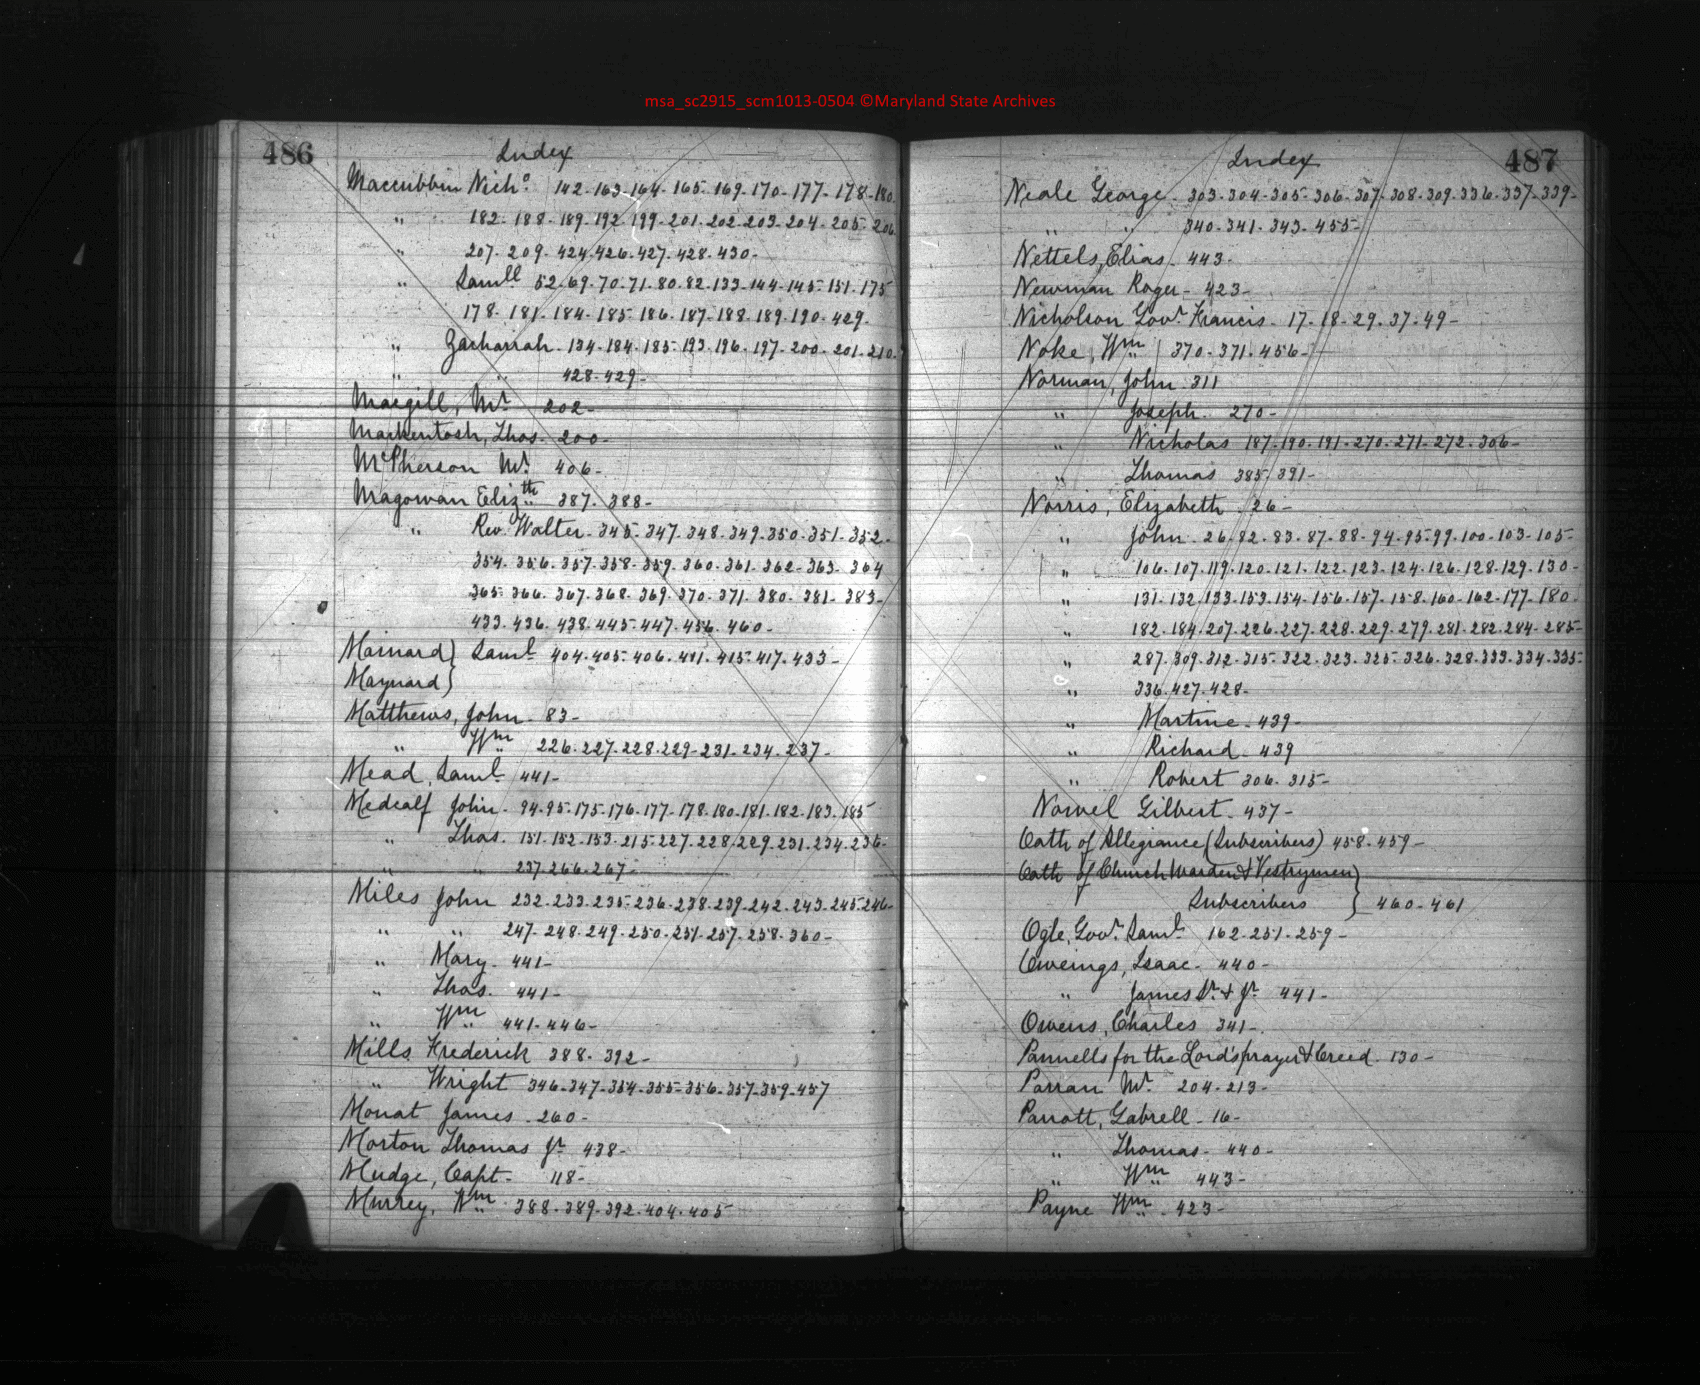 msa_sc2915_scm1013-0504 ©Maryland State Archives
486
Index
Maccubbin Nichº 142-163-164-165-169-170-177-178-180
" 182-188-189-192-199-201-202-203-204-205-206
" 207-209-424-426-427-428-430-
" Samll 52-69-70-71-80-82-133-144-145-151-175
178-181-184-185-186-187-188-189-190-429-
" Zachariah 134-184-185-193-196-197-200-201-210-
" " 428-429-
Macgill, Mr 202-
Mackentosh, Thos 200-
McPherson Mr 406-
Magowan Elizth 387-388-
" Rev. Walter 345-347-348-349-350-351-352-
354-356-357-358-359-360-361-362-363-364
365-366-367-368-369-370-371-380-381-383-
433-436-438-445-447-456-460-
Mainard } Saml 404-405-406-411-415-417-433-
Maynard }
Matthews, John 83-
" Wm 226-227-228-229-231-234-237-
Mead, Saml 441-
Medcalf John 94-95-175-176-177-178-180-181-182-183-185
" Thos. 151-152-153-215-227-228-229-231-234-236-
" " 237-266-267-
Miles John 232-233-235-236-238-239-242-243-245-246-
" " 247-248-249-250-251-257-258-360-
" Mary 441-
" Thos. 441-
" Wm 441-446-
Mills Frederick 388-392-
" Wright 346-347-354-355-356-357-359-457
Monat James 260-
Morton Thomas Jr 438-
Mudge, Capt- 118-
Murrey, Wm 388-389-392-404-405
487
Index
Neale George 303-304-305-306-307-308-309-336-337-339-
" " 340-341-343-455-
Nettels, Elias 443-
Newman Roger 423-
Nicholson Govr Francis 17-18-29-37-49-
Noke, Wm 370-371-456-
Norman, John 311
" Joseph 270-
" Nicholas 187-190-191-270-271-272-306-
" Thomas 385-391-
Norris, Elizabeth 26-
" John 26-82-83-87-88-94-95-99-100-103-105-
" 106-107-119-120-121-122-123-124-126-128-129-130-
" 131-132-133-153-154-156-157-158-160-162-177-180-
" 182-184-207-226-227-228-229-279-281-282-284-285-
" 287-309-312-315-322-323-325-326-328-333-334-335-
" 336-427-428-
" Martine 439-
" Richard 439
" Robert 306-315-
Nowel Gilbert 437-
Oath of Allegiance (Subscribers) 458-459-
Oath of Church Warden & Vestrymen }
Subscribers } 460-461
Ogle, Govr Saml 162-251-259-
Oweings, Isaac- 440-
" James Sr & Jr 441-
Owens, Charles 341-
Pannells for the Lord's prayer & Creed 130-
Parran Mr 204-213-
Parrott, Gabrell 16-
" Thomas 440-
" Wm 443-
Payne Wm 423-